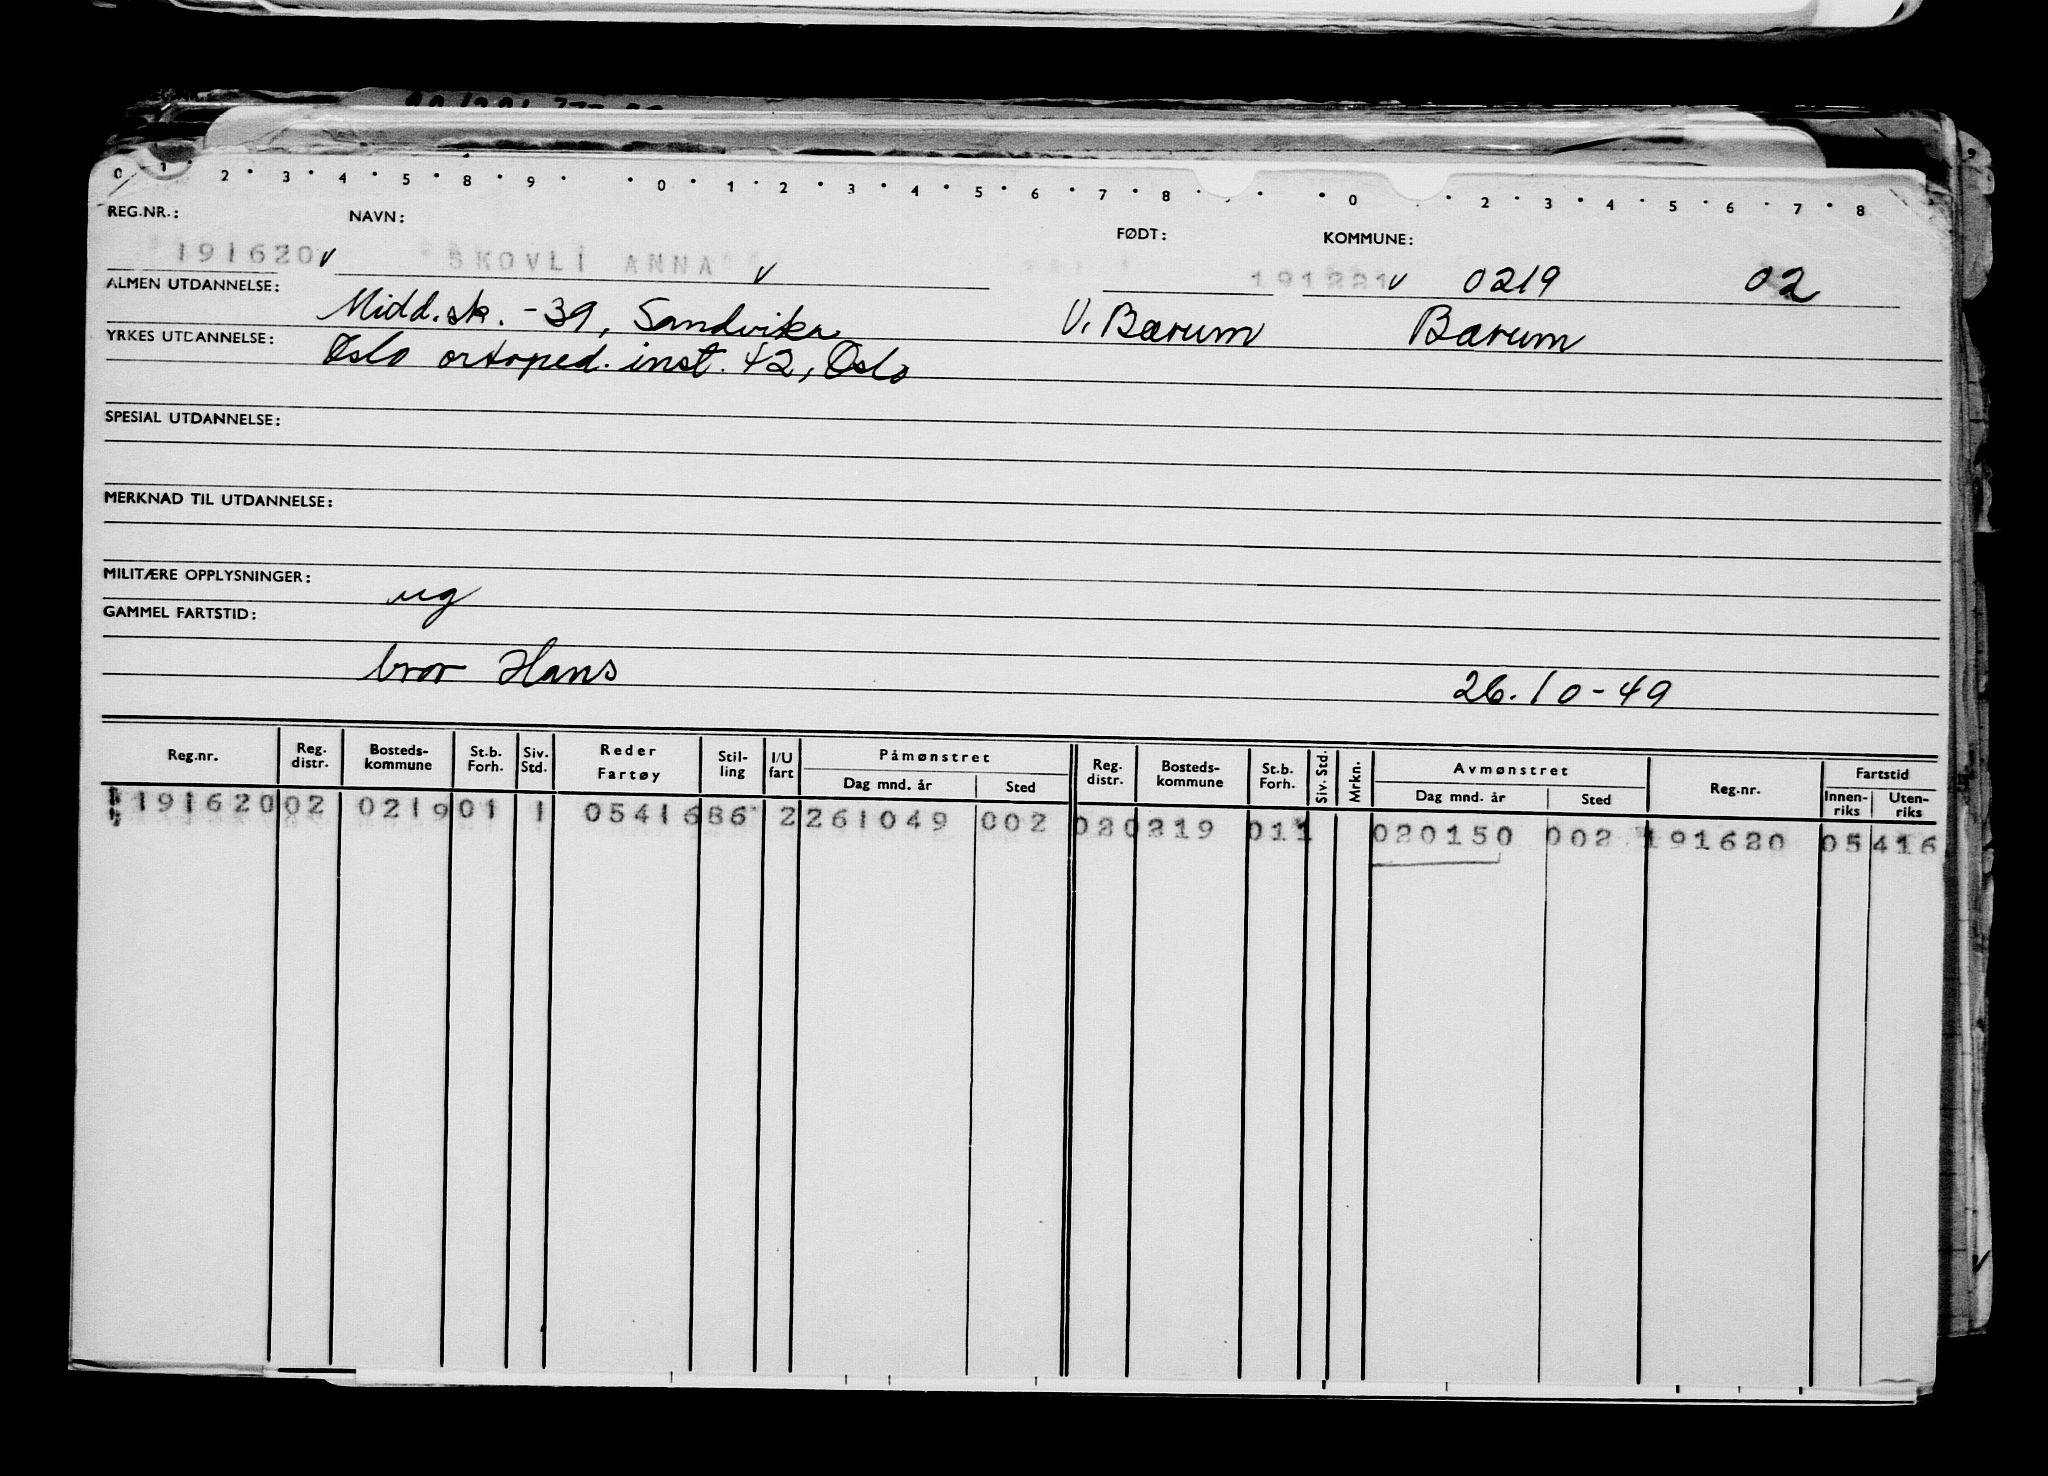 0 1 2 • 3 • 4 • 5 • 8 • 9 • • 0 • 1 • 2 • 3 • 4 • 5 • 6 • 7 • 8 • • • 0 • 2 • 3 • 4 • 5 • 6 • 7 • 8
REG.NR.: NAVN: FØDT: KOMMUNE:
191620 v SKOVLI ANNA v 191221 v 0219 02
ALMEN UTDANNELSE: Midd.sk. -39, Sandvika V. Bærum Bærum
YRKES UTDANNELSE: Oslo ortoped. inst. 42, Oslo
SPESIAL UTDANNELSE:
MERKNAD TIL UTDANNELSE:
MILITÆRE OPPLYSNINGER: ug
GAMMEL FARTSTID:
bror Hans 26.10-49
Reg.nr. Reg. distr. Bosteds- kommune St.b. Forh. Siv. Std. Reder Fartøy Stil- ling I/U fart Påmønstret Dag mnd. år Sted Reg. distr. Bosteds- kommune St.b. Forh. Siv. Std. Mrkn. Avmønstret Dag mnd. år Sted Reg.nr. Fartstid Innen- riks Uten- riks
191620 02 0219 01 1 05416 86 2 261049 002 02 0219 01 1 020150 002 191620 05416